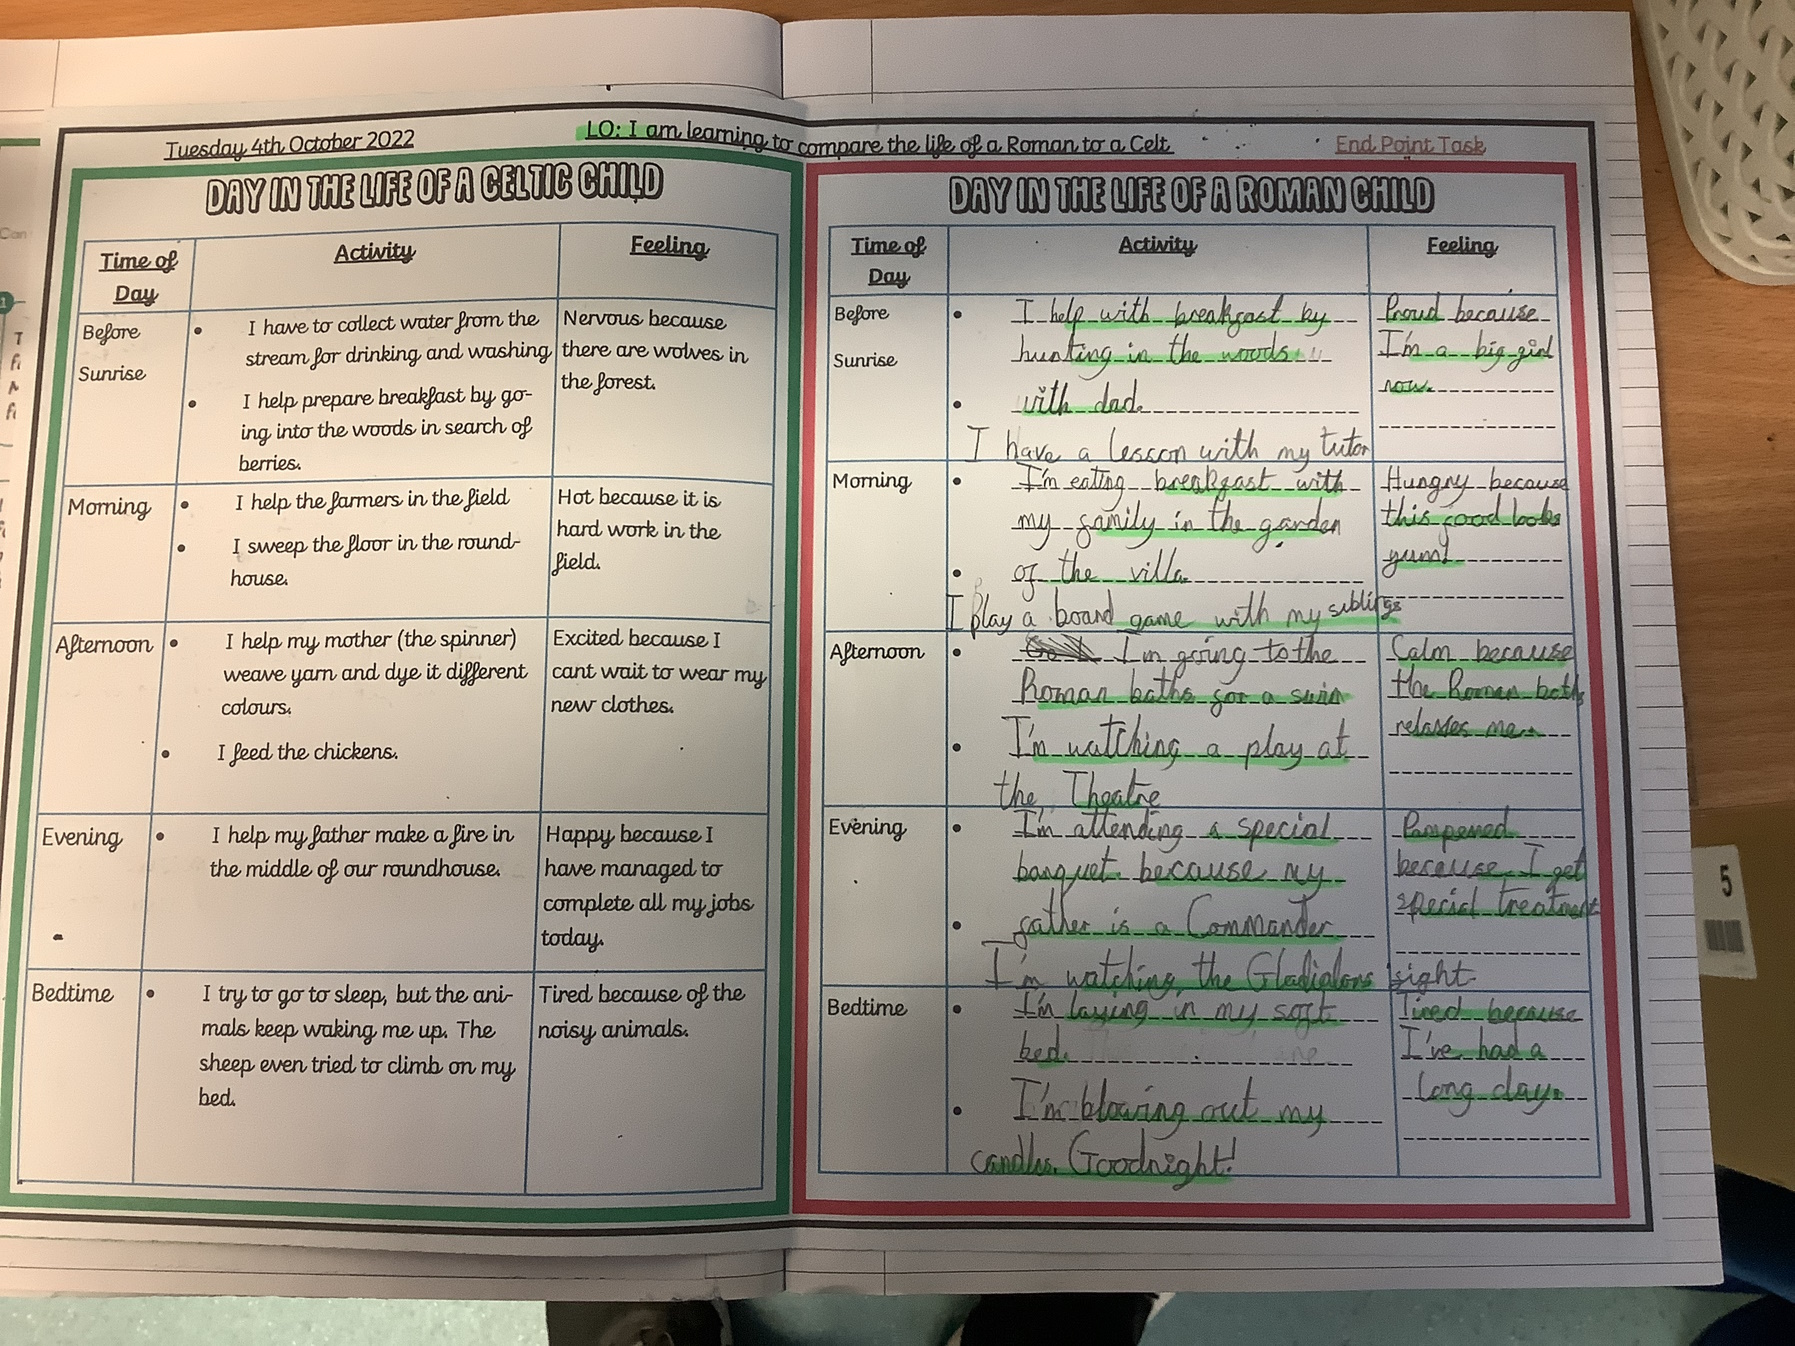 Tuesday 4th October 2022
LO: I am learning to compare the life of a Roman to a Celt
End Point Task
DAY IN THE LIFE OF A CELTIC CHILD
Time of
Day
Activity
Feeling
Before
Sunrise
I have to collect water from the
stream for drinking and washing
I help prepare breakfast by go-
ing into the woods in search of
berries.
Nervous because
there are wolves in
the forest.
Morning
I help the farmers in the field
I sweep the floor in the round-
house.
Hot because it is
hard work in the
field.
Afternoon
I help my mother (the spinner)
weave yarn and dye it different
colours.
I feed the chickens.
Excited because I
cant wait to wear my
new clothes.
Evening
I help my father make a fire in
the middle of our roundhouse.
Happy because I
have managed to
complete all my jobs
today.
Bedtime
I try to go to sleep, but the ani-
mals keep waking me up. The
sheep even tried to climb on my
bed.
Tired because of the
noisy animals.
DAY IN THE LIFE OF A ROMAN CHILD
Time of
Day
Activity
Feeling
Before
Sunrise
I help with breakfast by
hunting in the woods
with dad.
I have a lesson with my tutor
Proud because
I'm a big girl
now.
Morning
I'm eating breakfast with
my family in the garden
of the villa.
I play a board game with my siblings
Hungry because
this food looks
yum!
Afternoon
I'm going to the
Roman baths for a swim
I'm watching a play at
the Theatre
Calm because
the Roman baths
relaxes me.
Evening
I'm attending a special
banquet because my
father is a Commander
I'm watching the Gladiators fight.
Pampered
because I get
special treatment
Bedtime
I'm laying in my soft
bed.
I'm blowing out my
candles. Goodnight!
Tired because
I've had a
long day.
5